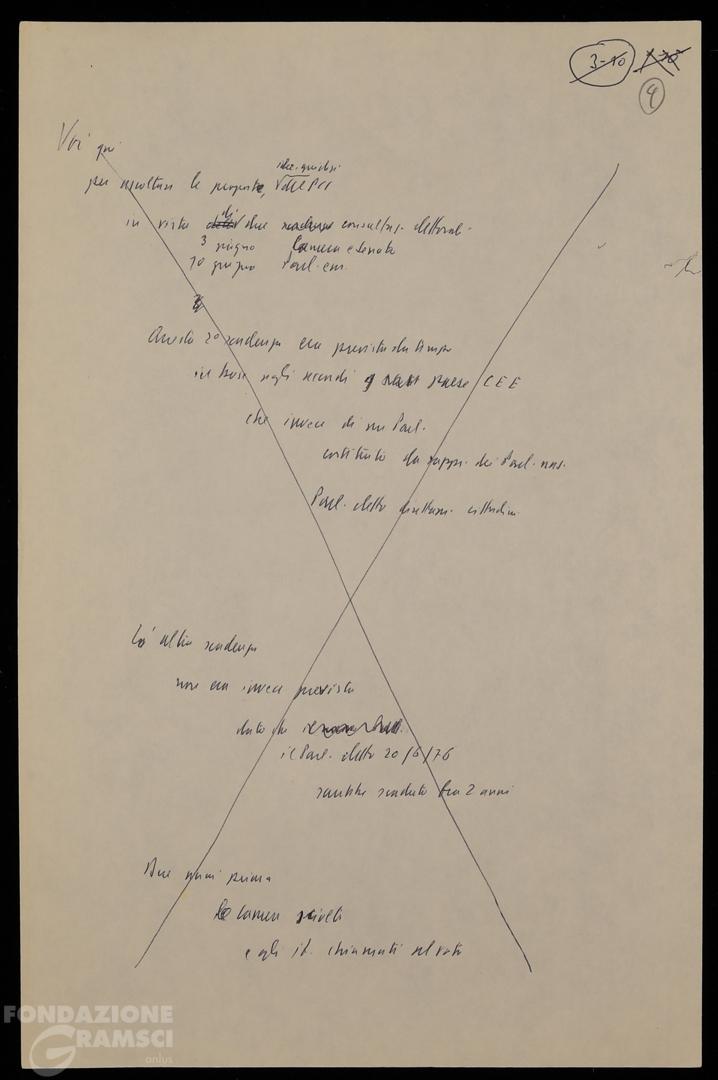 3-10 1-10
4
Voi qui
idee-guida
per ascoltare le proposte, del PCI
in vista di due scadenze consultaz. elettoral.
3 giugno Camera e Senato
10 giugno Parl. eur.
Questa 2º scadenza era prevista da tempo
in base agli accordi paesi CEE
che invece di un Parl.
costituito da rappr. dei Parl. naz.
Parl. eletto direttam. cittadini
L'altra scadenza
non era invece prevista
dato che
il Parl. eletto 20/6/76
sarebbe scaduto fra 2 anni
Due anni prima
le Camere sciolte
e gli it. chiamati al voto
FONDAZIONE
GRAMSCI
onlus